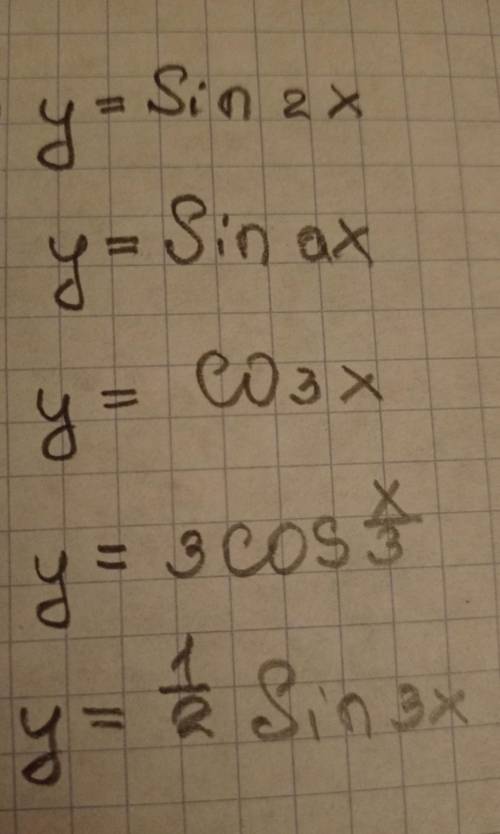 y = Sin 2x
y = Sin ax
y = CO3x
y = 3COS x/3
y = 1/2 Sin 3x